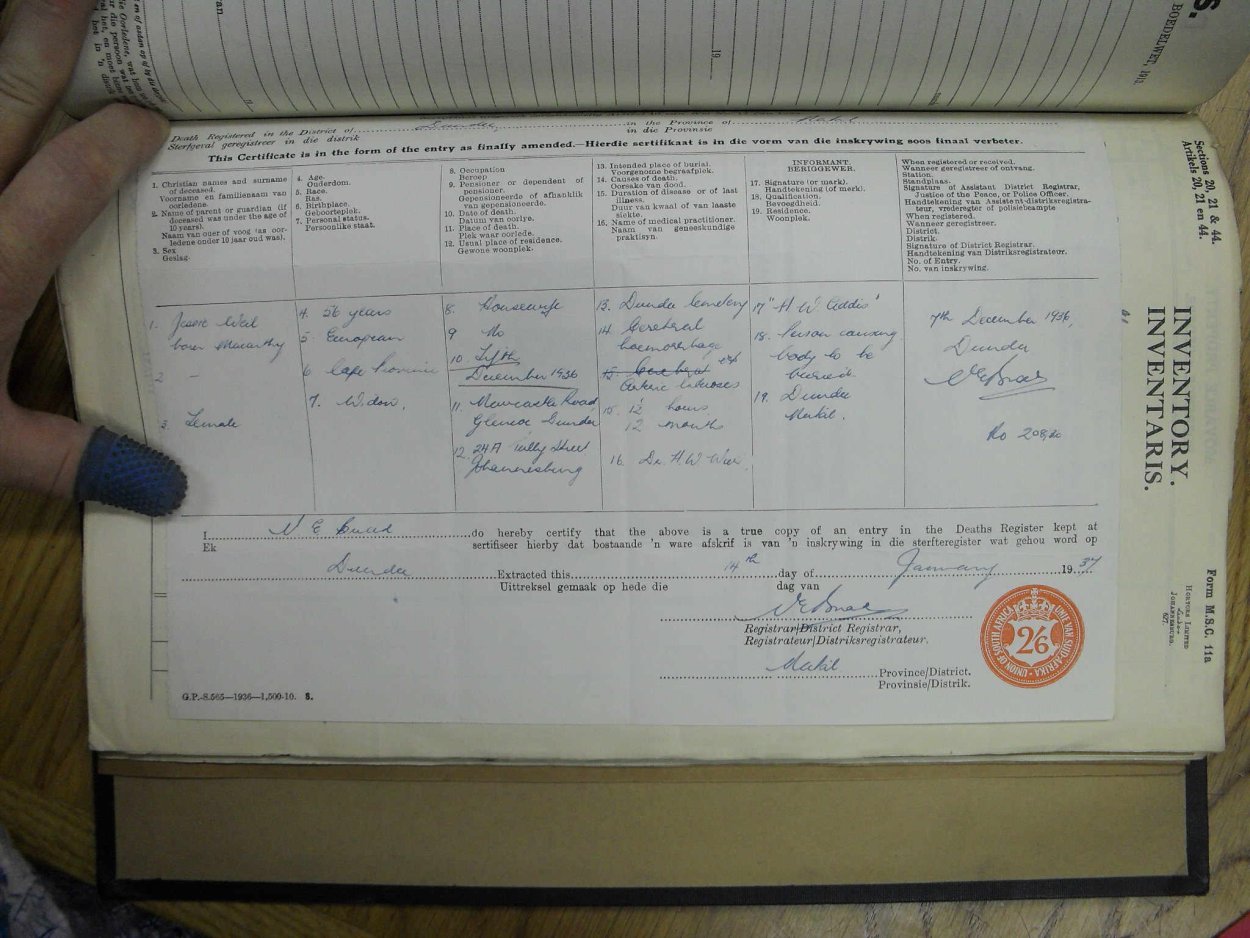 BOEDELWET, 1913.
19
Death Registered in the District of Dundee in the Province of Natal
Sterfgeval geregistreer in die distrik in die Provinsie
This Certificate is in the form of the entry as finally amended.—Hierdie sertifikaat is in die vorm van die inskrywing soos finaal verbeter.
1. Christian names and surname of deceased.
Voorname en familienaam van oorledene.
2. Name of parent or guardian (if deceased was under the age of 10 years).
Naam van ouer of voog (as oorledene onder 10 jaar oud was).
3. Sex
Geslag.
4. Age.
Ouderdom.
5. Race.
Ras.
6. Birthplace.
Geboorteplek.
7. Personal status.
Persoonlike staat.
8. Occupation
Beroep
9. Pensioner or dependent of pensioner.
Gepensioneerde of afhanklik van gepensioneerde.
10. Date of death.
Datum van oorlye.
11. Place of death.
Plek waar oorlede.
12. Usual place of residence.
Gewone woonplek.
13. Intended place of burial.
Voorgenome begrafplek.
14. Causes of death.
Oorsake van dood.
15. Duration of disease or of last illness.
Duur van kwaal of van laaste siekte.
16. Name of medical practitioner.
Naam van geneeskundige praktisyn.
INFORMANT.
BERIGGEWER.
17. Signature (or mark).
Handtekening (of merk).
18. Qualification.
Bevoegdheid.
19. Residence.
Woonplek.
When registered or received.
Wanneer geregistreer of ontvang.
Station.
Standplaas.
Signature of Assistant District Registrar, Justice of the Peace, or Police Officer.
Handtekening van Assistent-distriksregistrateur, vrederegter of polisiebeampte
When registered.
Wanneer geregistreer.
District.
Distrik.
Signature of District Registrar.
Handtekening van Distriksregistrateur.
No. of Entry.
No. van inskrywing.
1. Jessie Weil
born Macarthy
2 -
3. Female
4. 56 years
5. European
6 Cape Province
7. Widow.
8. Housewife
9 No
10. Fifth
December 1936
11. Newcastle Road
Glencoe Dundee
12. 24A Tully Street
Johannesburg
13. Dundee Cemetery
14. Cerebral
haemorrhage
15.
15. 12 hours
12 months
16. Dr. H. W.
17 "H W Addis"
18. Person causing
body to be
buried
19. Dundee
Natal.
7th December 1936,
Dundee
I do hereby certify that the above is a true copy of an entry in the Deaths Register kept at
Ek sertifiseer hierby dat bostaande 'n ware afskrif is van 'n inskrywing in die sterfteregister wat gehou word op
Dundee Extracted this 14th day of January 1937
Uittreksel gemaak op hede die dag van
Registrar/District Registrar,
Registrateur/Distriksregistrateur.
Natal Province/District.
Provinsie/Distrik.
G.P.-S.565—1936—1,500-10. S.
UNION OF SOUTH AFRICA · UNIE VAN SUID-AFRIKA
2/6
Sections 20, 21 & 44.
Artikels 20, 21 en 44.
INVENTORY.
INVENTARIS.
Form M.S.C. 11a
HORTORS LIMITED
JOHANNESBURG.
627.